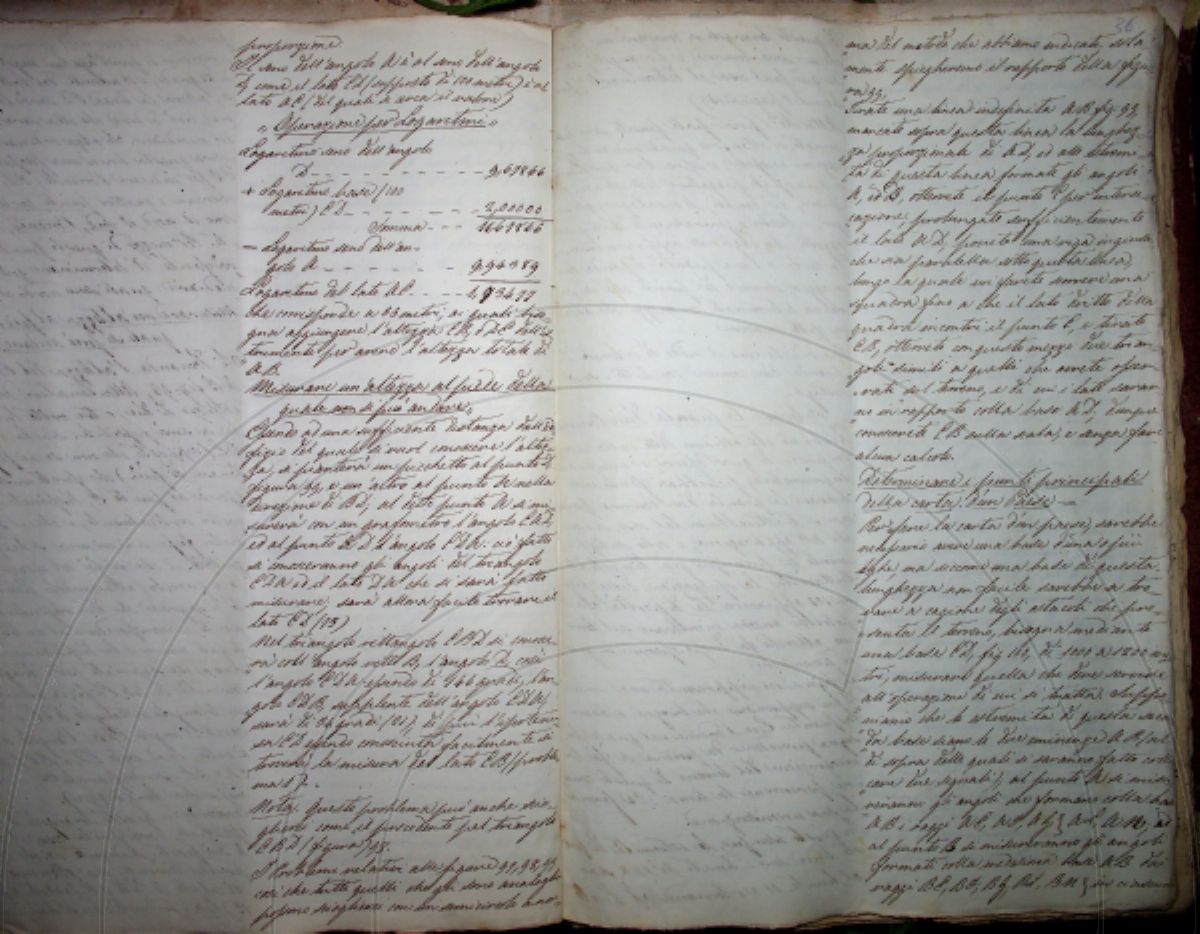 proporzione.
Il seno dell'angolo A è al seno dell'angolo
D, come il lato CD (supposto di 100 metri) è al
lato AC (del quale si cerca il valore)
" Operazione per Logaritmi "
Logaritmo seno dell'angolo
D - - - 9,69866
+ Logaritmo base (100
metri) CD - - - 2,00000
Somma - - - 11,69866
— Logaritmo seno dell'an-
golo A - - - 9,94389
Logaritmo del lato AC - - -
che corrisponde a 63 metri, ai quali biso-
gna aggiungere l'altezza
per avere l'altezza totale di
AB.
Misurare un'altezza al piede della
quale non si può andare.
Essendo ad una sufficiente distanza dall'edi-
fizio del quale si vuol conoscere l'altez-
za, si pianterà un picchetto al punto D,
figura 99, e un altro al punto A nella
direzione di BD; al detto punto A si mi-
surerà con un grafometro l'angolo CAD,
ed al punto D l'angolo CDA: ciò fatto
si conosceranno gli angoli del triangolo
CDA ed il lato DA che si sarà fatto
misurare; sarà allora facile trovare il
lato CD (73)
Nel triangolo rettangolo CBD si conosce-
rà coll'angolo retto B, l'angolo D, così
l'angolo CDA essendo di 146 gradi, l'an-
golo CDB, supplente dell'angolo CDA,
sarà di 34 gradi (21), di più l'ipotenu-
sa CD essendo conosciuta facilmente si
troverà la misura del lato CB (proble-
ma
Nota. Questo problema può anche scio-
gliersi come il precedente pel triangolo
CBD (figura) 98.
I Problemi relativi alle figure 97, 98, 99,
così che tutti quelli che gli sono analoghi
possono sciogliersi con un semicircolo
36
ma del metodo che abbiamo indicato, sola-
mente spiegheremo il rapporto della figu-
ra 99.
Tirate una linea indefinita AB fig 99,
marcate sopra questa linea la lunghez-
za proporzionale di AD, ed alle estremi-
tà di questa linea formate gli angoli
A, ed D, otterrete il punto C per interse-
cazione, prolungate sufficientemente
il lato AD, ponete una riga
che sia parallela sotto questa linea,
lungo la quale un farete scorrere una
squadra fino a che il lato dritto della
quadra incontri il punto C, e tirate
CB, otterrete con questo mezzo due trian-
goli simili a quelli che avrete oper-
rati sul terreno, e di cui i lati saran-
no in rapporto colla base AD, dunque
conoscerete CB sulla scala, e senza fare
alcun calcolo.
Determinare i punti principali
della carta d'un Paese —
Per fare la carta d'un paese, sarebbe
necessario avere una base d'una o più
leghe ma siccome una base di questa
lunghezza non facile sarebbe a tro-
vare a cagione degli ostacoli che pre-
senta il terreno, bisogna mediante
una base CD, fig di 1000 a 1200 me-
tri, misurare quella che deve servire
all'operazione di cui si tratta. Suppo-
niamo che le estremità di questa secon-
da base siano le due eminenze A B (al
di sopra delle quali si saranno fatto collo-
care due segnali), al punto A si misu-
reranno gli angoli che formano colla base
AB i raggi AC, AD,
al punto B si misureranno gli angoli
formati colla medesima base AB dai
raggi BC, BD,